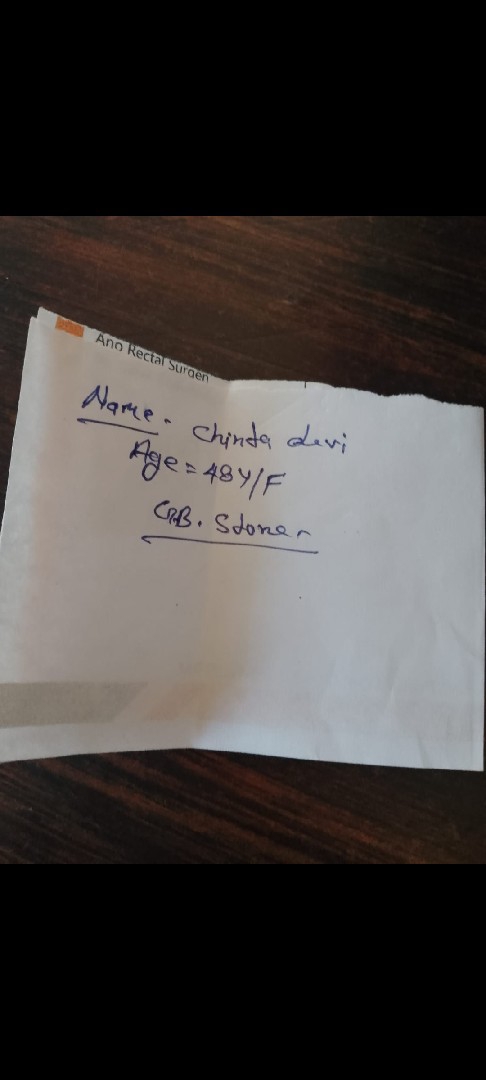 Ano Rectal Surgen
Name - Chinta devi
Age = 48Y/F
GB. Stone -